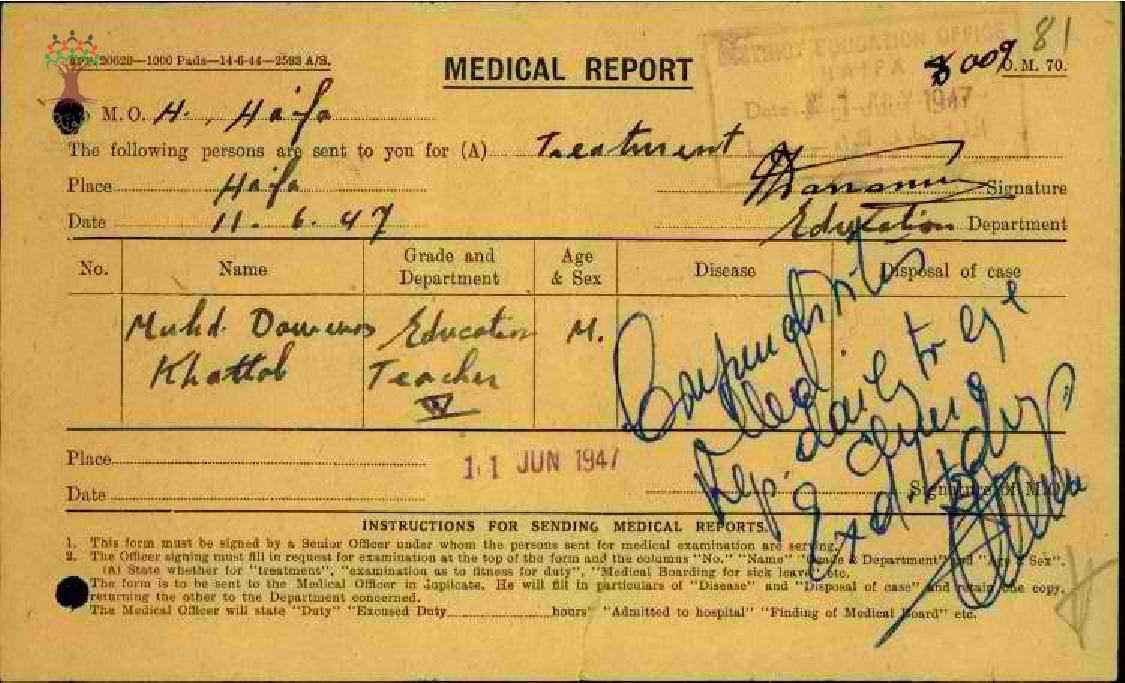 20620—1000 Pads—14-6-44—2593 A/S.
81
MEDICAL REPORT
DISTRICT EDUCATION OFFICE
HAIFA
Date 1947
O.M. 70.
M.O. H., Haifa
The following persons are sent to you for (A) Treatment
Place Haifa
Signature
Date 11. 6. 47
Education Department
No. Name Grade and Department Age & Sex Disease Disposal of case
Muhd. Education M.
Khattab Teacher
Conjunctivitis
daily for eye
Place
11 JUN 1947
Date
Signature of M.O.
INSTRUCTIONS FOR SENDING MEDICAL REPORTS.
1. This form must be signed by a Senior Officer under whom the persons sent for medical examination are serving.
2. The Officer signing must fill in request for examination at the top of the form and the columns "No." "Name" "Grade & Department" and "Age & Sex".
(A) State whether for "treatment", "examination as to fitness for duty", "Medical Boarding for sick leave" etc.
The form is to be sent to the Medical Officer in Duplicate. He will fill in particulars of "Disease" and "Disposal of case" and retain one copy,
returning the other to the Department concerned.
The Medical Officer will state "Duty" "Excused Duty hours" "Admitted to hospital" "Finding of Medical Board" etc.